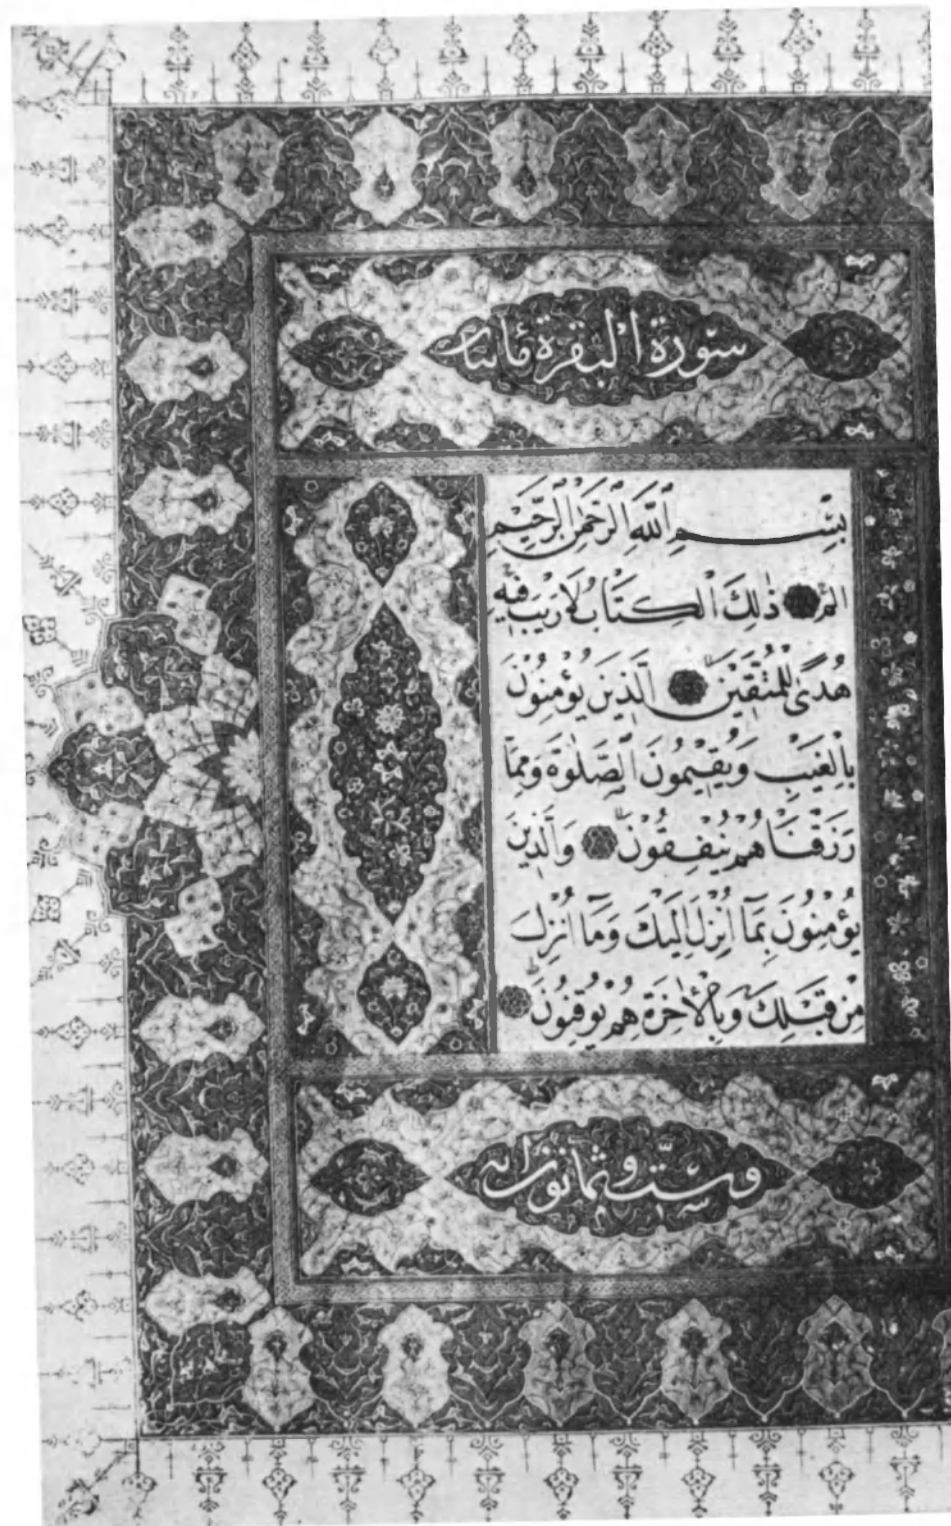 سورة البقرة مائتان
بِسْمِ ٱللَّهِ ٱلرَّحْمٰنِ ٱلرَّحِيمِ
الٓمٓ ذٰلِكَ ٱلْكِتَابُ لَا رَيْبَ فِيهِ
هُدًى لِلْمُتَّقِينَ ٱلَّذِينَ يُؤْمِنُونَ
بِالْغَيْبِ وَيُقِيمُونَ ٱلصَّلٰوةَ وَمِمَّا
رَزَقْنَاهُمْ يُنْفِقُونَ وَٱلَّذِينَ
يُؤْمِنُونَ بِمَٓا اُنْزِلَ اِلَيْكَ وَمَٓا اُنْزِلَ
مِنْ قَبْلِكَ وَبِالْاٰخِرَةِ هُمْ يُوقِنُونَ
وست وثمانون اية